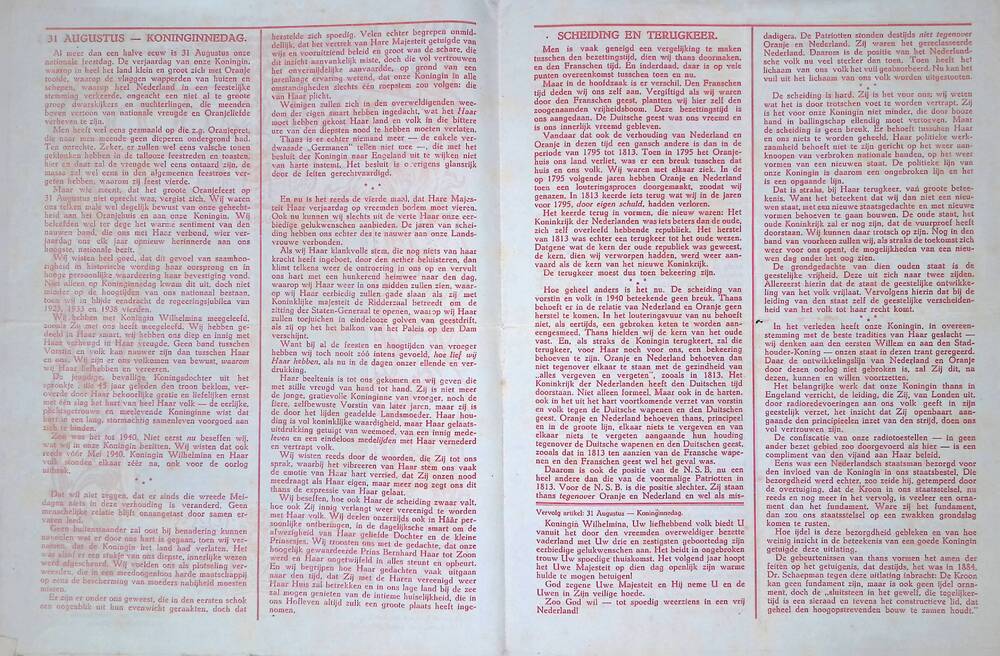 31 AUGUSTUS — KONINGINNEDAG.
Al meer dan een halve eeuw is 31 Augustus onze
nationale feestdag. De verjaardag van onze Koningin,
waarop in heel het land klein en groot zich met Oranje
tooide, waarop de vlaggen wapperden van huizen en
schepen, waarop heel Nederland in een feestelijke
stemming verkeerde, ongeacht een niet al te groote
groep dwarskijkers en nuchterlingen, die meenden
boven vertoon van nationale vreugde en Oranjeliefde
verheven te zijn.
Men heeft wel eens gesmaald op die z.g. Oranjepret,
die naar men meende geen diepere ondergrond had.
Ten onrechte. Zeker, er zullen wel eens valsche tonen
geklonken hebben in de tallooze feestreden en toasten,
hier en daar zal de vreugde wel eens ontaard zijn, de
massa zal wel eens in den algemeenen feestroes ver-
geten hebben, waarom zij feest vierde.
Maar wie meent, dat het groote Oranjefeest op
31 Augustus niet oprecht was, vergist zich. Wij waren
ons telken male wel degelijk bewust van onze gehecht-
heid aan het Oranjehuis en aan onze Koningin. Wij
beleefden wel ter dege het warme sentiment van den
nauwen band, die ons met Haar verbond, wier ver-
jaardag ons elk jaar opnieuw herinnerde aan ons
hoogste, nationale bezit.
Wij wisten heel goed, dat dit gevoel van saamhoo-
righeid in historische wording haar oorsprong en in
hooge persoonlijke waardeering haar bevestiging vond.
Niet alleen op Koninginnedag kwam dit uit, doch niet
minder op de hoogtijden van ons nationaal bestaan,
toen wij in blijde eendracht de regeeringsjubilea van
1923, 1933 en 1938 vierden.
Wij hebben met Koningin Wilhelmina meegeleefd,
zooals Zij met ons heeft meegeleefd. Wij hebben ge-
deeld in Haar smart, wij hebben ons diep en innig met
Haar verheugd in Haar vreugde. Geen band tusschen
Vorstin en volk kan nauwer zijn dan tusschen Haar
en ons. Wij zijn er ons volkomen van bewust, waarom
wij Haar liefhebben en vereeren.
De jeugdige, bevallige Koningsdochter uit het
sprookje, die 45 jaar geleden den troon beklom, ver-
overde door Haar bekoorlijke gratie en liefelijken ernst
met één slag het hart van heel Haar volk — de eerlijke,
plichtsgetrouwe en meelevende Koninginne wist dat
hart in een lang, stormachtig samenleven voorgoed aan
zich te binden.
Zoo was het tot 1940. Niet eerst nu beseffen wij,
wat wij in onze Koningin bezitten. Wij wisten dat ook
reeds vóór Mei 1940. Koningin Wilhelmina en Haar
volk stonden elkaar zéér na, ook voor de oorlog
uitbrak.
* * *
Dat wil niet zeggen, dat er sinds die wreede Mei-
dagen niets in deze verhouding is veranderd. Geen
menschelijke relatie blijft onaangetast door samen er-
varen leed.
Geen buitenstaander zal ooit bij benadering kunnen
navoelen wat er door ons hart is gegaan, toen wij ver-
namen, dat de Koningin het land had verlaten. Het
was alsof er een stukje van ons diepste, innerlijke wezen
werd afgescheurd. Wij voelden ons als plotseling ver-
weesden, die in een meedoogenloos harde maatschappij
op eens de bescherming van moeders nabijheid moesten
missen.
Er zijn er onder ons geweest, die in den eersten schok
een oogenblik uit hun evenwicht geraakten, doch dat
herstelde zich spoedig. Velen echter begrepen onmid-
dellijk, dat het vertrek van Hare Majesteit getuigde van
wijs en vooruitziend beleid en groot was de schare, die
dit inzicht aanvankelijk miste, doch die vol vertrouwen
het onvermijdelijke aanvaardde, op grond van een
jarenlange ervaring wetend, dat onze Koningin in alle
omstandigheden slechts één roepstem zou volgen: die
van Haar plicht.
Weinigen zullen zich in den overweldigenden wee-
dom der eigen smart hebben ingedacht, wat het Haar
moet hebben gekost Haar land en volk in die bittere
ure van den diepsten nood te hebben moeten verlaten.
Thans is er echter niemand meer — de enkele ver-
dwaasde „Germanen” tellen niet mee —, die met het
besluit der Koningin naar Engeland uit te wijken niet
van harte instemt. Het besluit is o. erigens glansrijk
door de feiten gerechtvaardigd.
* * *
En nu is het reeds de vierde maal, dat Hare Majes-
teit Haar verjaardag op vreemden bodem moet vieren.
Ook nu kunnen wij slechts uit de verte Haar onze eer-
biedige gelukwenschen aanbieden. De jaren van schei-
ding hebben ons echter des te nauwer aan onze Lands-
vrouwe verbonden.
Als wij Haar klankvolle stem, die nog niets van haar
kracht heeft ingeboet, door den aether beluisteren, dan
klimt telkens weer de ontroering in ons op en vervult
ons hart met een hunkerend heimwee naar den dag,
waarop wij Haar weer in ons midden zullen zien, waar-
op wij Haar eerbiedig zullen gade slaan als zij met
Koninklijke majesteit de Ridderzaal betreedt om de
zitting der Staten-Generaal te openen, waar op wij Haar
zullen toejuichen in eindelooze golven van geestdrift,
als zij op het het balkon van het Paleis op den Dam
verschijnt.
Want bij al de feesten en hoogtijden van vroeger
hebben wij toch nooit zóó intens gevoeld, hoe lief wij
Haar hebben, als nu in de dagen onzer ellende en ver-
drukking.
Haar beeltenis is tot ons gekomen en wij geven die
met stille vreugd van hand tot hand. Zij is niet meer
de jonge, gratievolle Koninginne van vroeger, noch de
fiere, zelfbewuste Vorstin van later jaren, maar zij is
de door het lijden geadelde Landsmoeder. Haar hou-
ding is vol koninklijke waardigheid, maar Haar gelaats-
uitdrukking getuigt van weemoed, van een innig mede-
leven en een eindeloos medelijden met Haar vernederd
en vertrapt volk.
Wij wisten reeds door de woorden, die Zij tot ons
sprak, waarbij het vibreeren van Haar stem ons vaak
de emotie van Haar hart verried, dat Zij onzen nood
meedraagt als Haar eigen, maar meer nog zegt ons dit
thans de expressie van Haar gelaat.
Wij beseffen, hoe ook Haar de scheiding zwaar valt,
hoe ook Zij innig verlangt weer vereenigd te worden
met Haar volk. Wij deelen onzerzijds ook in Háár per-
soonlijke ontberingen, in de dagelijksche smart om de
afwezigheid van Haar geliefde Dochter en de kleine
Prinsesjes. Wij troosten ons met de gedachte, dat onze
hooglijk gewaardeerde Prins Bernhard Haar tot Zoon
werd en Haar onvertwijfeld in alles steunt en opbeurt.
En wij begrijpen hoe Haar gedachten vaak uitgaan
naar den tijd, dat Zij met de Haren vereenigd weer
Haar Huis zal betrekken en in ons lage land bij de zee
zal mogen genieten van de intieme huiselijkheid, die in
ons Hofleven altijd zulk een groote plaats heeft inge-
nomen.
SCHEIDING EN TERUGKEER.
Men is vaak geneigd een vergelijking te maken
tusschen den bezettingstijd, dien wij thans doormaken,
en den Franschen tijd. En inderdaad, daar is op vele
punten overeenkomst tusschen toen en nu.
Maar in de hoofdzaak is er verschil. Den Franschen
tijd deden wij ons zelf aan. Vergiftigd als wij waren
door den Franschen geest, plantten wij hier zelf den
zoogenaamden vrijheidsboom. Deze bezettingstijd is
ons aangedaan. De Duitsche geest was ons vreemd en
is ons innerlijk vreemd gebleven.
Vandaar dat ook de verhouding van Nederland en
Oranje in dezen tijd een gansch andere is dan in de
periode van 1795 tot 1813. Toen in 1795 het Oranje-
huis ons land verliet, was er een breuk tusschen dat
huis en ons volk. Wij waren met elkaar ziek. In de
op 1795 volgende jaren hebben Oranje en Nederland
toen een louteringsproces doorgemaakt, zoodat wij
genazen. In 1813 keerde iets terug wat wij in de jaren
voor 1795, door eigen schuld, hadden verloren.
Het keerde terug in vormen, die nieuw waren: Het
Koninkrijk der Nederlanden was iets beters dan de oude,
zich zelf overleefd hebbende republiek. Het herstel
van 1813 was echter een terugkeer tot het oude wezen.
Datgene wat de kern der oude republiek was geweest,
de kern, dien wij verworpen hadden, werd weer aan-
vaard als de kern van het nieuwe Koninkrijk.
De terugkeer moest dus toen bekeering zijn.
* * *
Hoe geheel anders is het nu. De scheiding van
vorstin en volk in 1940 beteekende geen breuk. Thans
behoeft er in de relatie van Nederland en Oranje geen
herstel te komen. In het louteringsvuur van nu behoeft
niet, als eertijds, een gebroken keten te worden aan-
eengesmeed. Thans hielden wij de kern van het oude
vast. En, als straks de Koningin terugkeert, zal die
terugkeer, voor Haar noch voor ons, een bekeering
behoeven te zijn. Oranje en Nederland behoeven dan
niet tegenover elkaar te staan met de gezindheid van
„alles vergeven en vergeten”, zooals in 1813. Het
Koninkrijk der Nederlanden heeft den Duitschen tijd
doorstaan. Niet alleen formeel. Maar ook in de harten,
ook in het uit het hart voortkomende verzet van vorstin
en volk tegen de Duitsche wapenen en den Duitschen
geest. Oranje en Nederland behoeven thans, principeel
en in de groote lijn, elkaar niets te vergeven en van
elkaar niets te vergeten aangaande hun houding
tegenover de Duitsche wapenen en den Duitschen geest,
zooals dat in 1813 ten aanzien van de Fransche wape-
nen en den Franschen geest wel het geval was.
Daarom is ook de positie van de N. S. B. nu een
heel andere dan die van de voormalige Patriotten in
1813. Voor de N. S. B. is die positie slechter. Zij staan
thans tegenover Oranje en Nederland en wel als mis-
Vervolg artikel: 31 Augustus — Koninginnedag.
Koningin Wilhelmina, Uw liefhebbend volk biedt U
vanuit het door den vreemden overweldiger bezette
vaderland met Uw drie en zestigsten geboortedag zijn
eerbiedige gelukwenschen aan. Het buidt in ongebroken
trouw Uw spoedige thuiskomst. Het volgend jaar hoopt
het Uwe Majesteit op dien dag openlijk zijn warme
hulde te mogen betuigen!
God zegene Uwe Majesteit en Hij neme U en de
Uwen in Zijn veilige hoede.
Zoo God wil — tot spoedig weerziens in een vrij
Nederland!
dadigers. De Patriotten stonden destijds niet tegenover
Oranje en Nederland. Zij waren het gereclasseerde
Nederland. Daarom is de positie van het Nederland-
sche volk nu veel sterker dan toen. Toen heeft het
lichaam van ons volk het vuil geabsorbeerd. Nu kan het
vuil uit het lichaam van ons volk worden uitgestooten.
* * *
De scheiding is hard. Zij is het voor ons; wij weten
wat het is door trotschen voet te worden vertrapt. Zij
is het voor onze Koningin niet minder, die door booze
hand in ballingschap ellendig moet vertoeven. Maar
de scheiding is geen breuk. Er behoeft tusschen Haar
en ons niets te worden geheeld. Haar politieke werk-
zaamheid behoeft niet te zijn gericht op het weer aan-
knoopen van verbroken nationale banden, op het weer
vormen van een nieuwen staat. De politieke lijn van
onze Koningin is daarom een ongebroken lijn en het
is een opgaande lijn.
Dat is straks, bij Haar terugkeer, van groote betee-
kenis. Want het beteekent dat wij dan niet een nieu-
wen staat, met een nieuwe staatsgedachte en met nieuwe
vormen behoeven te gaan bouwen. De oude staat, het
oude Koninkrijk zal er nog zijn, dat de vuurproef heeft
doorstaan. Wij kunnen daar trotsch op zijn. Nog in den
band van voorheen zullen wij, als straks de toekomst zich
weer voor ons opent, de mogelijkheden van een nieu-
wen dag onder het oog zien.
De grondgedachte van dien ouden staat is de
geestelijke vrijheid. Deze uit zich naar twee zijden.
Allereerst hierin dat de staat de geestelijke ontwikke-
ling van het volk vrijlaat. Vervolgens hierin dat bij de
leiding van den staat zelf de geestelijke verscheiden-
heid van het volk tot haar recht komt.
* * *
In het verleden heeft onze Koningin, in overeen-
stemming met de beste tradities van Haar geslacht —
wij denken aan den eersten Willem en aan den Stad-
houder-Koning — onzen staat in dezen trant geregeerd.
Daar de ontwikkelingslijn van Nederland en Oranje
door dezen oorlog niet gebroken is, zal Zij dit, na
dezen, kunnen en willen voortzetten.
Het belangrijke werk dat onze Koningin thans in
Engeland verricht, de leiding, die Zij, van Londen uit,
door radioredevoeringen aan ons volk geeft in zijn
geestelijk verzet, het inzicht dat Zij openbaart aan-
gaande den principieelen inzet van den strijd, doen ons
dit vol vertrouwen zijn.
De confiscatie van onze radiotoestellen — in geen
ander bezet gebied zoo doorgevoerd als hier — is een
compliment van den vijand aan Haar beleid.
Eens was een Nederlandsch staatsman bezorgd voor
den invloed van de Koningin in ons staatsbestel. Die
bezorgdheid werd echter, zoo zeide hij, getemperd door
de overtuiging, dat de Kroon in ons staatsstelsel, nu
reeds en nog meer in het vervolg, is veeleer een orna-
ment dan het fundament. Ware zij het fundament,
dan zou ons staatsstelsel op een zwakken grondslag
komen te rusten.
Hoe ijdel is deze bezorgdheid gebleken en van hoe
weinig inzicht in de beteekenis van een goede Koningin
getuigde deze uitlating.
De gebeurtenissen van thans vormen het amen der
feiten op het getuigenis, dat destijds, het was in 1884,
Dr. Schaepman tegen deze uitlating inbracht: De Kroon
kan geen fundament zijn, maar is ook geen ijdel orna-
ment, doch de „sluitsteen in het gewelf, die tegelijker-
tijd is een sieraad en tevens het constructieve lid, dat
geheel den hoogopstrevenden bouw te zamen houdt.”